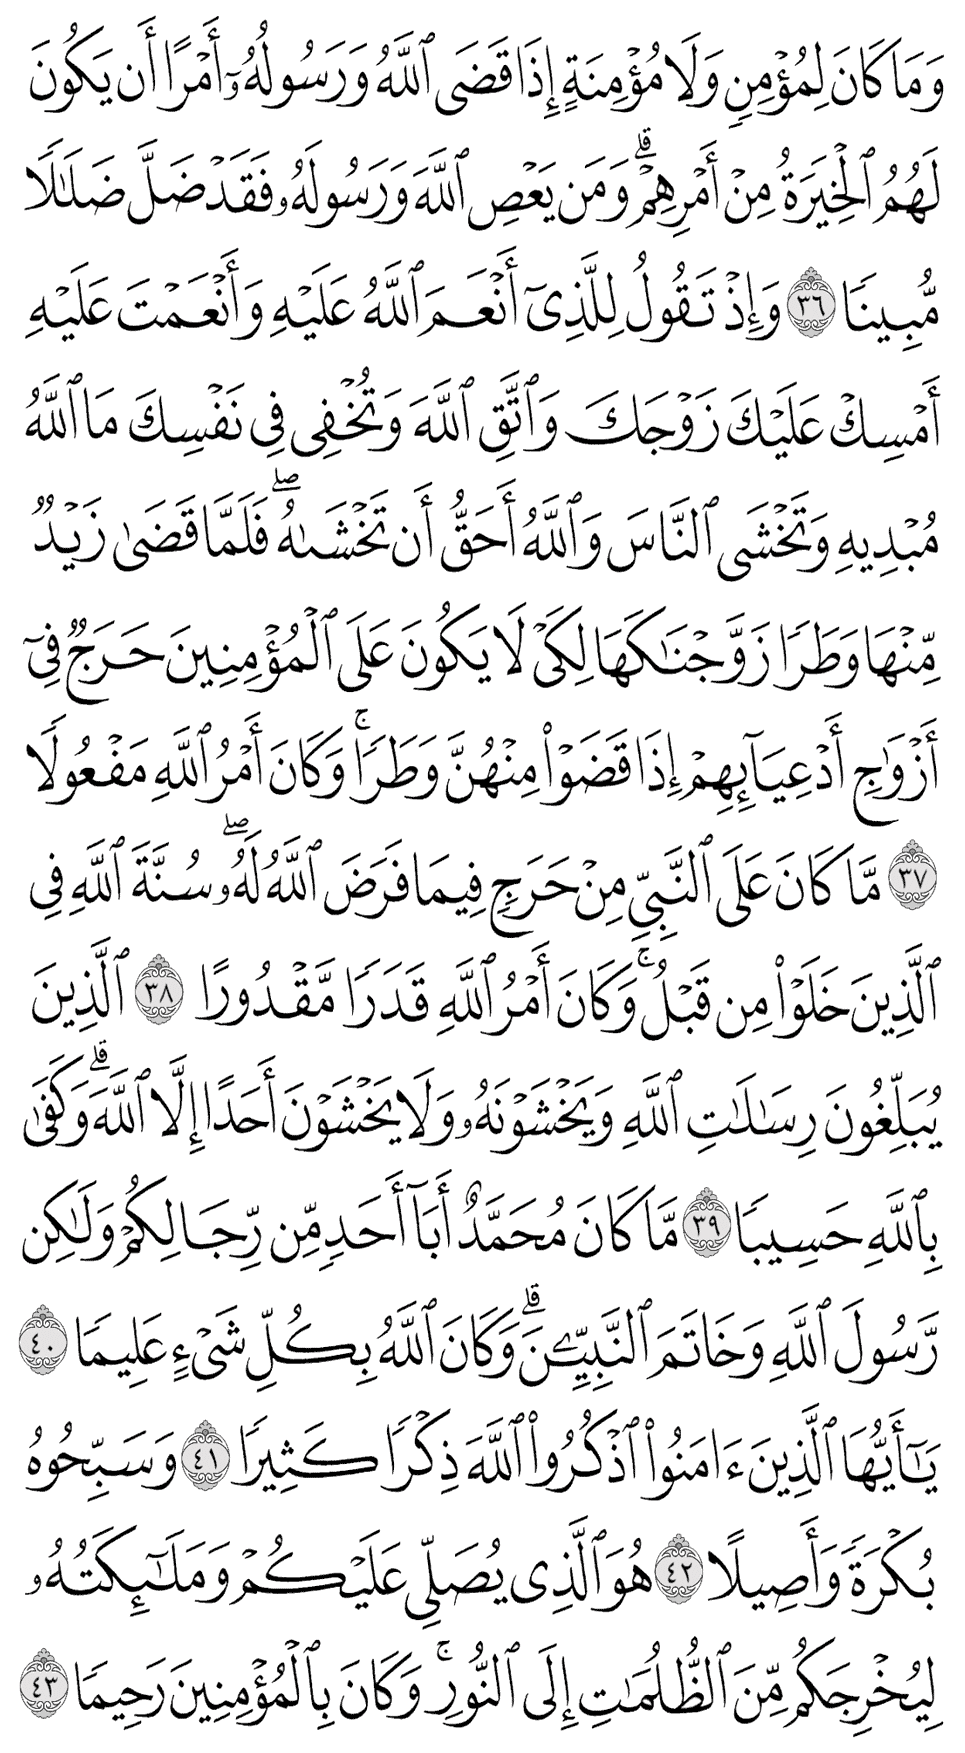 وَمَا كَانَ لِمُؤْمِنٍ وَلَا مُؤْمِنَةٍ إِذَا قَضَى ٱللَّهُ وَرَسُولُهُۥٓ أَمْرًا أَن يَكُونَ
لَهُمُ ٱلْخِيَرَةُ مِنْ أَمْرِهِمْ ۗ وَمَن يَعْصِ ٱللَّهَ وَرَسُولَهُۥ فَقَدْ ضَلَّ ضَلَـٰلًا
مُّبِينًا ٣٦ وَإِذْ تَقُولُ لِلَّذِىٓ أَنْعَمَ ٱللَّهُ عَلَيْهِ وَأَنْعَمْتَ عَلَيْهِ
أَمْسِكْ عَلَيْكَ زَوْجَكَ وَٱتَّقِ ٱللَّهَ وَتُخْفِى فِى نَفْسِكَ مَا ٱللَّهُ
مُبْدِيهِ وَتَخْشَى ٱلنَّاسَ وَٱللَّهُ أَحَقُّ أَن تَخْشَىٰهُ ۖ فَلَمَّا قَضَىٰ زَيْدٌ
مِّنْهَا وَطَرًا زَوَّجْنَـٰكَهَا لِكَىْ لَا يَكُونَ عَلَى ٱلْمُؤْمِنِينَ حَرَجٌ فِىٓ
أَزْوَٰجِ أَدْعِيَآئِهِمْ إِذَا قَضَوْا۟ مِنْهُنَّ وَطَرًا ۚ وَكَانَ أَمْرُ ٱللَّهِ مَفْعُولًا
٣٧ مَّا كَانَ عَلَى ٱلنَّبِىِّ مِنْ حَرَجٍ فِيمَا فَرَضَ ٱللَّهُ لَهُۥ ۖ سُنَّةَ ٱللَّهِ فِى
ٱلَّذِينَ خَلَوْا۟ مِن قَبْلُ ۚ وَكَانَ أَمْرُ ٱللَّهِ قَدَرًا مَّقْدُورًا ٣٨ ٱلَّذِينَ
يُبَلِّغُونَ رِسَـٰلَـٰتِ ٱللَّهِ وَيَخْشَوْنَهُۥ وَلَا يَخْشَوْنَ أَحَدًا إِلَّا ٱللَّهَ ۗ وَكَفَىٰ
بِٱللَّهِ حَسِيبًا ٣٩ مَّا كَانَ مُحَمَّدٌ أَبَآ أَحَدٍ مِّن رِّجَالِكُمْ وَلَـٰكِن
رَّسُولَ ٱللَّهِ وَخَاتَمَ ٱلنَّبِيِّـۧنَ ۗ وَكَانَ ٱللَّهُ بِكُلِّ شَىْءٍ عَلِيمًا ٤٠
يَـٰٓأَيُّهَا ٱلَّذِينَ ءَامَنُوا۟ ٱذْكُرُوا۟ ٱللَّهَ ذِكْرًا كَثِيرًا ٤١ وَسَبِّحُوهُ
بُكْرَةً وَأَصِيلًا ٤٢ هُوَ ٱلَّذِى يُصَلِّى عَلَيْكُمْ وَمَلَـٰٓئِكَتُهُۥ
لِيُخْرِجَكُم مِّنَ ٱلظُّلُمَـٰتِ إِلَى ٱلنُّورِ ۚ وَكَانَ بِٱلْمُؤْمِنِينَ رَحِيمًا ٤٣